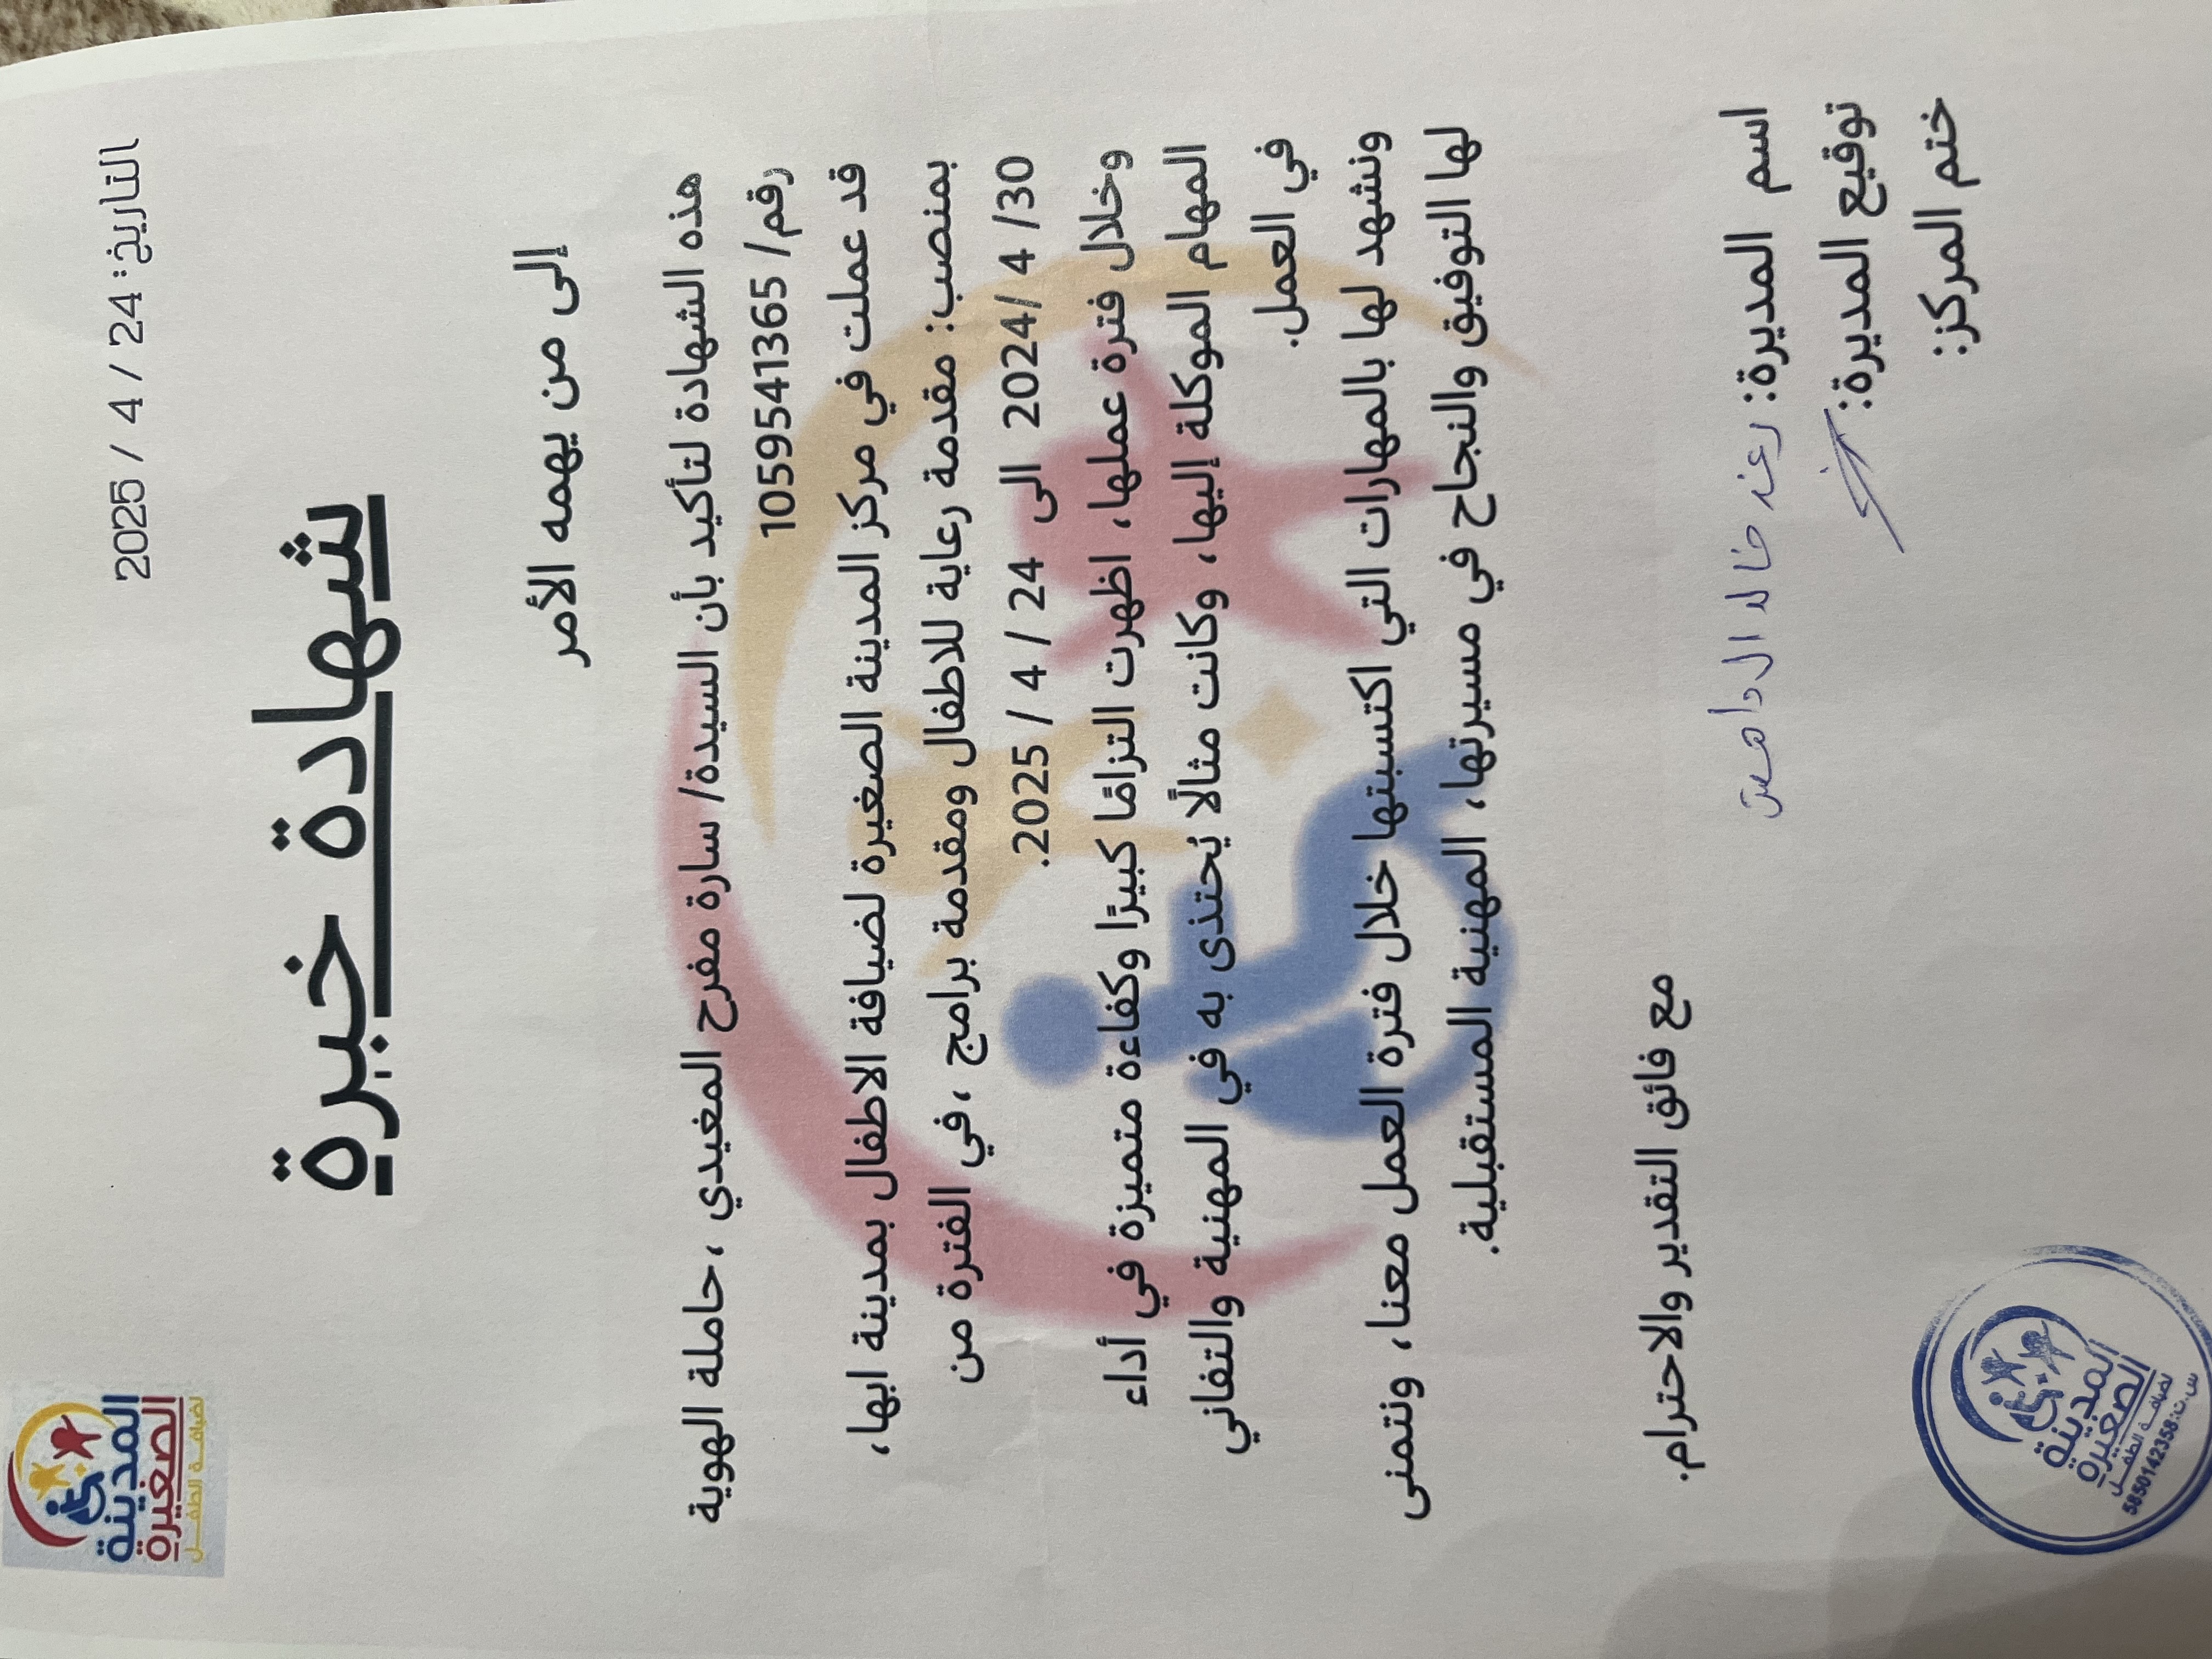 المدينة
الصغيرة
لضيافة الطفل
التاريخ: 24 / 4 / 2025
شهادة خبرة
إلى من يهمه الأمر
هذه الشهادة لتأكيد بأن السيدة/ سارة مفرح المغيدي ، حاملة الهوية
رقم/ 1059541365
قد عملت في مركز المدينة الصغيرة لضيافة الاطفال بمدينة ابها،
بمنصب: مقدمة رعاية للاطفال ومقدمة برامج ، في الفترة من
30/ 4 /2024 الى 24 / 4 / 2025.
وخلال فترة عملها، اظهرت التزامًا كبيرًا وكفاءة متميزة في أداء
المهام الموكلة إليها، وكانت مثالًا يُحتذى به في المهنية والتفاني
في العمل.
ونشهد لها بالمهارات التي اكتسبتها خلال فترة العمل معنا، ونتمنى
لها التوفيق والنجاح في مسيرتها، المهنية المستقبلية.
مع فائق التقدير والاحترام.
اسم المديرة: رغد خالد الداهس
توقيع المديرة:
ختم المركز:
المدينة
الصغيرة
لضيافة الطفل
س.ت: 5850142358